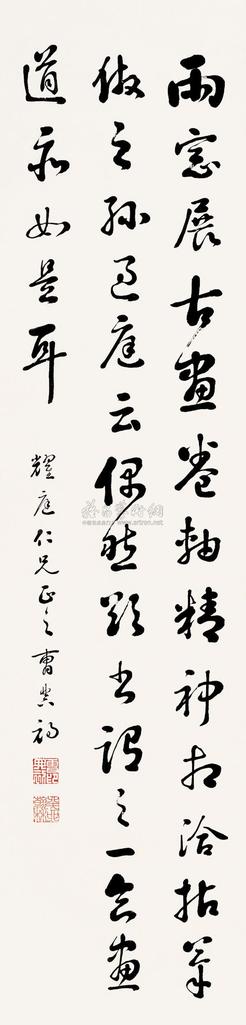 雨窗展古画卷轴精神相洽拈笔
仿之孙过庭云偶然欲书谓之一合画
道亦如是耳
耀庭仁兄正之 曹典初